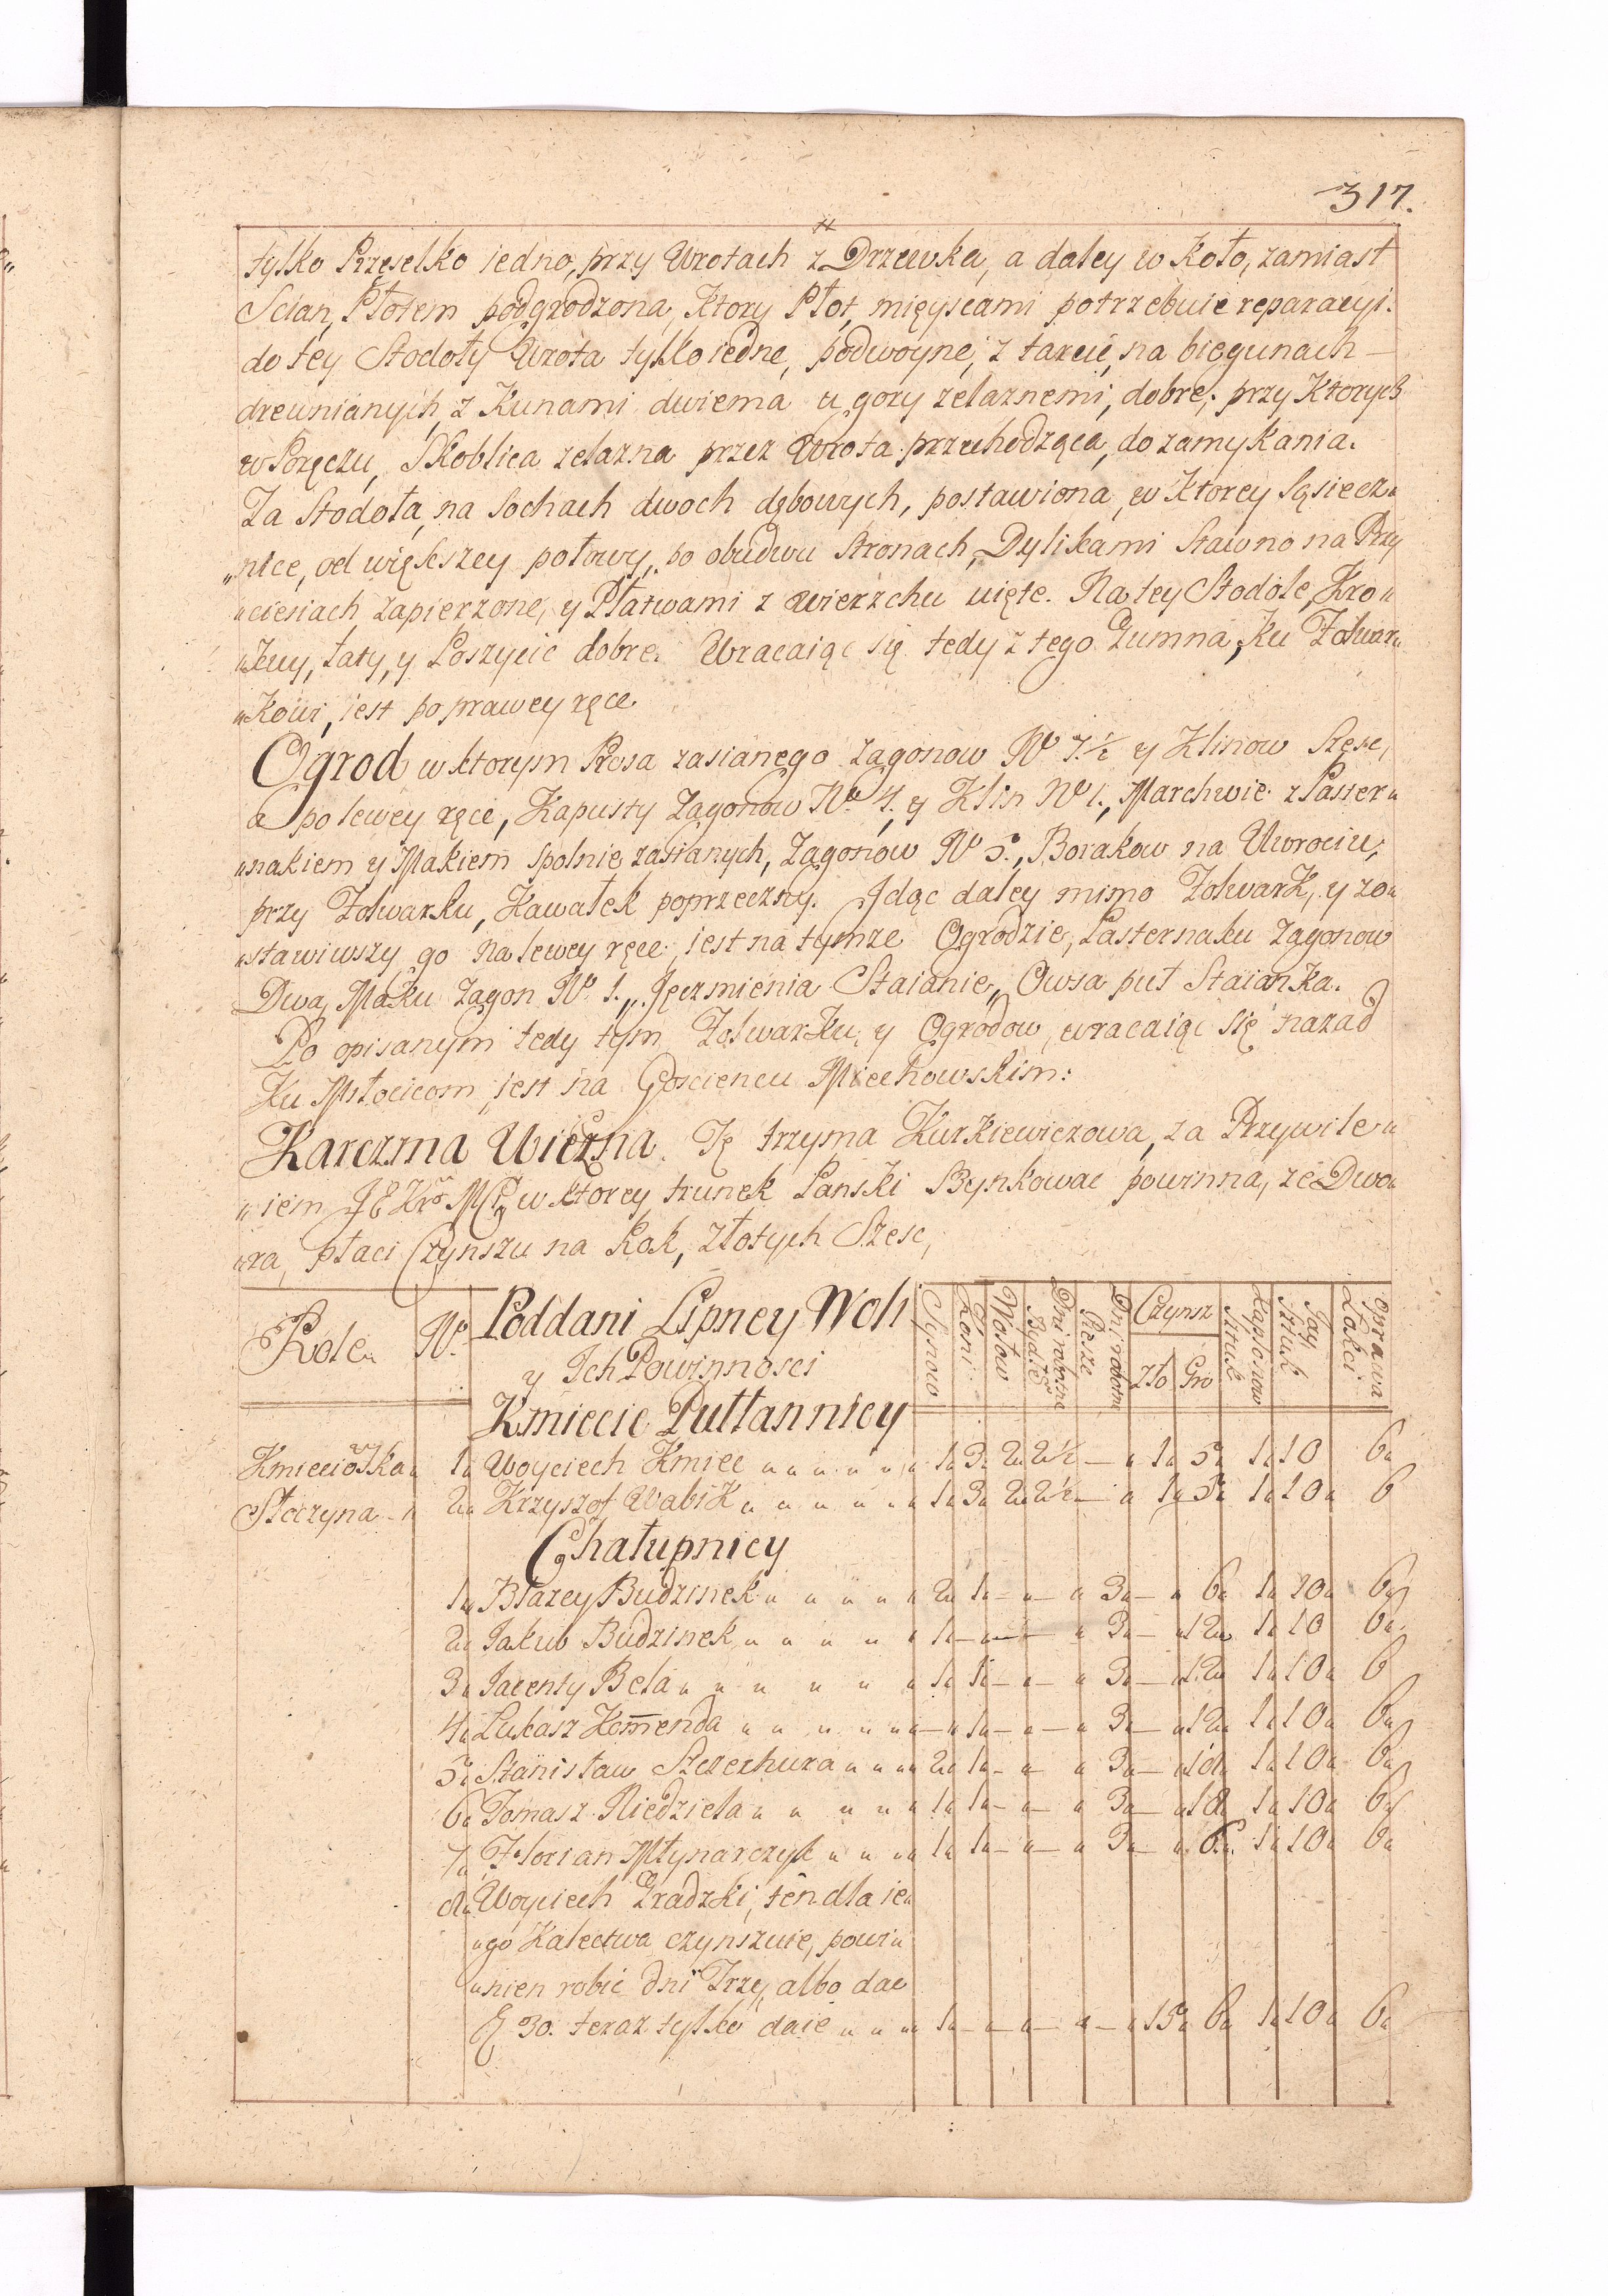 317.
tylko Przęselko iedno, przy Wrotach z Drzewka, a daley w koło, zamiast
Scian, Płotem podgrodzona, ktory Płot, mięyscami potrzebuie reparacyi.
do tey Stodoły Wrota tylko iedne, podwoyne, z tarcic, na biegunach
drewnianych, z Kunami dwiema u gory zelaznemi, dobre, przy Ktorych
w Poręczu, Skoblica zelazna przez Wrota przechodząca, do zamykania.
Ta Stodoła, na Sochach dwoch dębowych, postawiona, w Ktorey Sąsiecz„
„nice, od większey połowy, po obudwu Stronach, Dylikami Stawno na Przy
„ciesiach zapierzone, y Płatwami z wierzchu uięte. Na tey Stodole, Kro„
„kwy, Łaty, y Poszycie dobre. Wracaiąc się tedy z tego Gumna, ku Folwar„
„kowi, iest po prawey ręce
Ogrod w ktorym Prosa zasianego Zagonow No 7½ y Klinow Szesc,
a po lewey ręce, Kapusty Zagonow No 4. y Klin No 1., Marchwie z Paster„
„nakiem y Makiem spolnie zasianych, Zagonow No 5., Borakow na Uwrociu,
przy Folwarku, Kawałek poprzeczny. Idąc daley mimo Folwark, y zo„
„stawiwszy go na lewey ręce, iest na tymze Ogrodzie, Pasternaku Zagonow
Dwa, Maku Zagon No 1.„ Jęczmienia Staianie„ Owsa puł Staianka.
Po opisanym tedy tym Folwarku, y Ogrodow, wracaiąc się nazad
Ku Młocicom, iest na Gosciencu Miechowskim:
Karczma Wiezna. Tę trzyma Kurkiewiczowa, za Przywile„
„iem JE Kro Mci, w ktorey trunek Panski Szynkowac powinna, ze Dwo„
„ra, płaci Czynszu na Rok, Złotych Szesc,
Role No. Poddani Lipney Woli Synow Koni Wołow Dni robocze Bydłe Dni robocze Piesze Czynsz Kapłonow Sztuk Jay Sztuk Oprawa Łokci
y Ich Powinnosci Zło Gro
Kmiecie Pułłannicy
Kmieciowska 1 Woyciech Kmiec 1 3 2 2½ — 1 5 1 10 6
Stoczyna 2 Krzysztof Wabik 1 3 2 2½ — 1 5 1 10 6
Chałupnicy
1 Błazey Budzinek 2 1 — — 3 — 6 1 10 6
2 Jakub Budzinek 1 — — 3 — 12 1 10 6
3 Jacenty Bela 1 1 — — 3 — 12 1 10 6
4 Łukasz Kom̄enda — 1 — — 3 — 12 1 10 6
5 Stanisław Szczerhura 2 1 — — 3 — 18 1 10 6
6 Tomasz Niedziela 1 1 — — 3 — 18 1 10 6
7 Florian Młynarczyk 1 1 — — 3 — 6 1 10 6
8 Woyciech Gradzki, ten dla ie„
„go Kalectwa czynszuie, powi„
„nien robic dni Trzy, albo dac
30. teraz tylko daie 1 — — — — 15 6 1 10 6